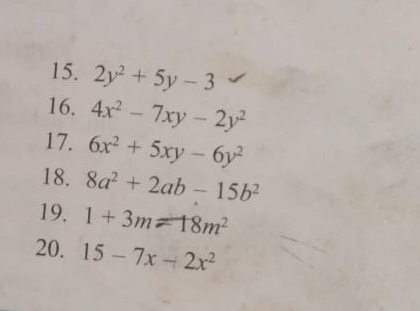 15. 2y² + 5y – 3 ✓
16. 4x² – 7xy – 2y²
17. 6x² + 5xy – 6y²
18. 8a² + 2ab – 15b²
19. 1 + 3m – 18m²
20. 15 – 7x – 2x²